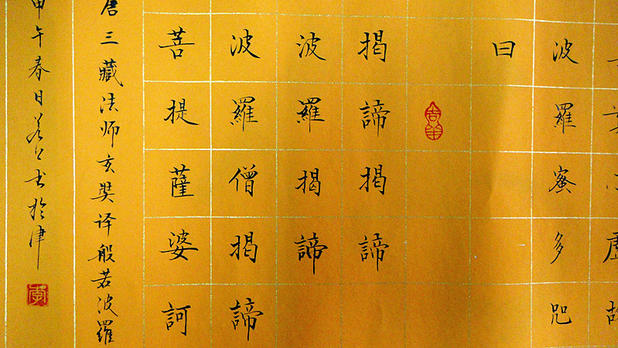 虛故
波羅蜜多咒
曰
揭諦揭諦
波羅揭諦
波羅僧揭諦
菩提薩婆訶
唐三藏法师玄奘译般若波羅
甲午春日书於津